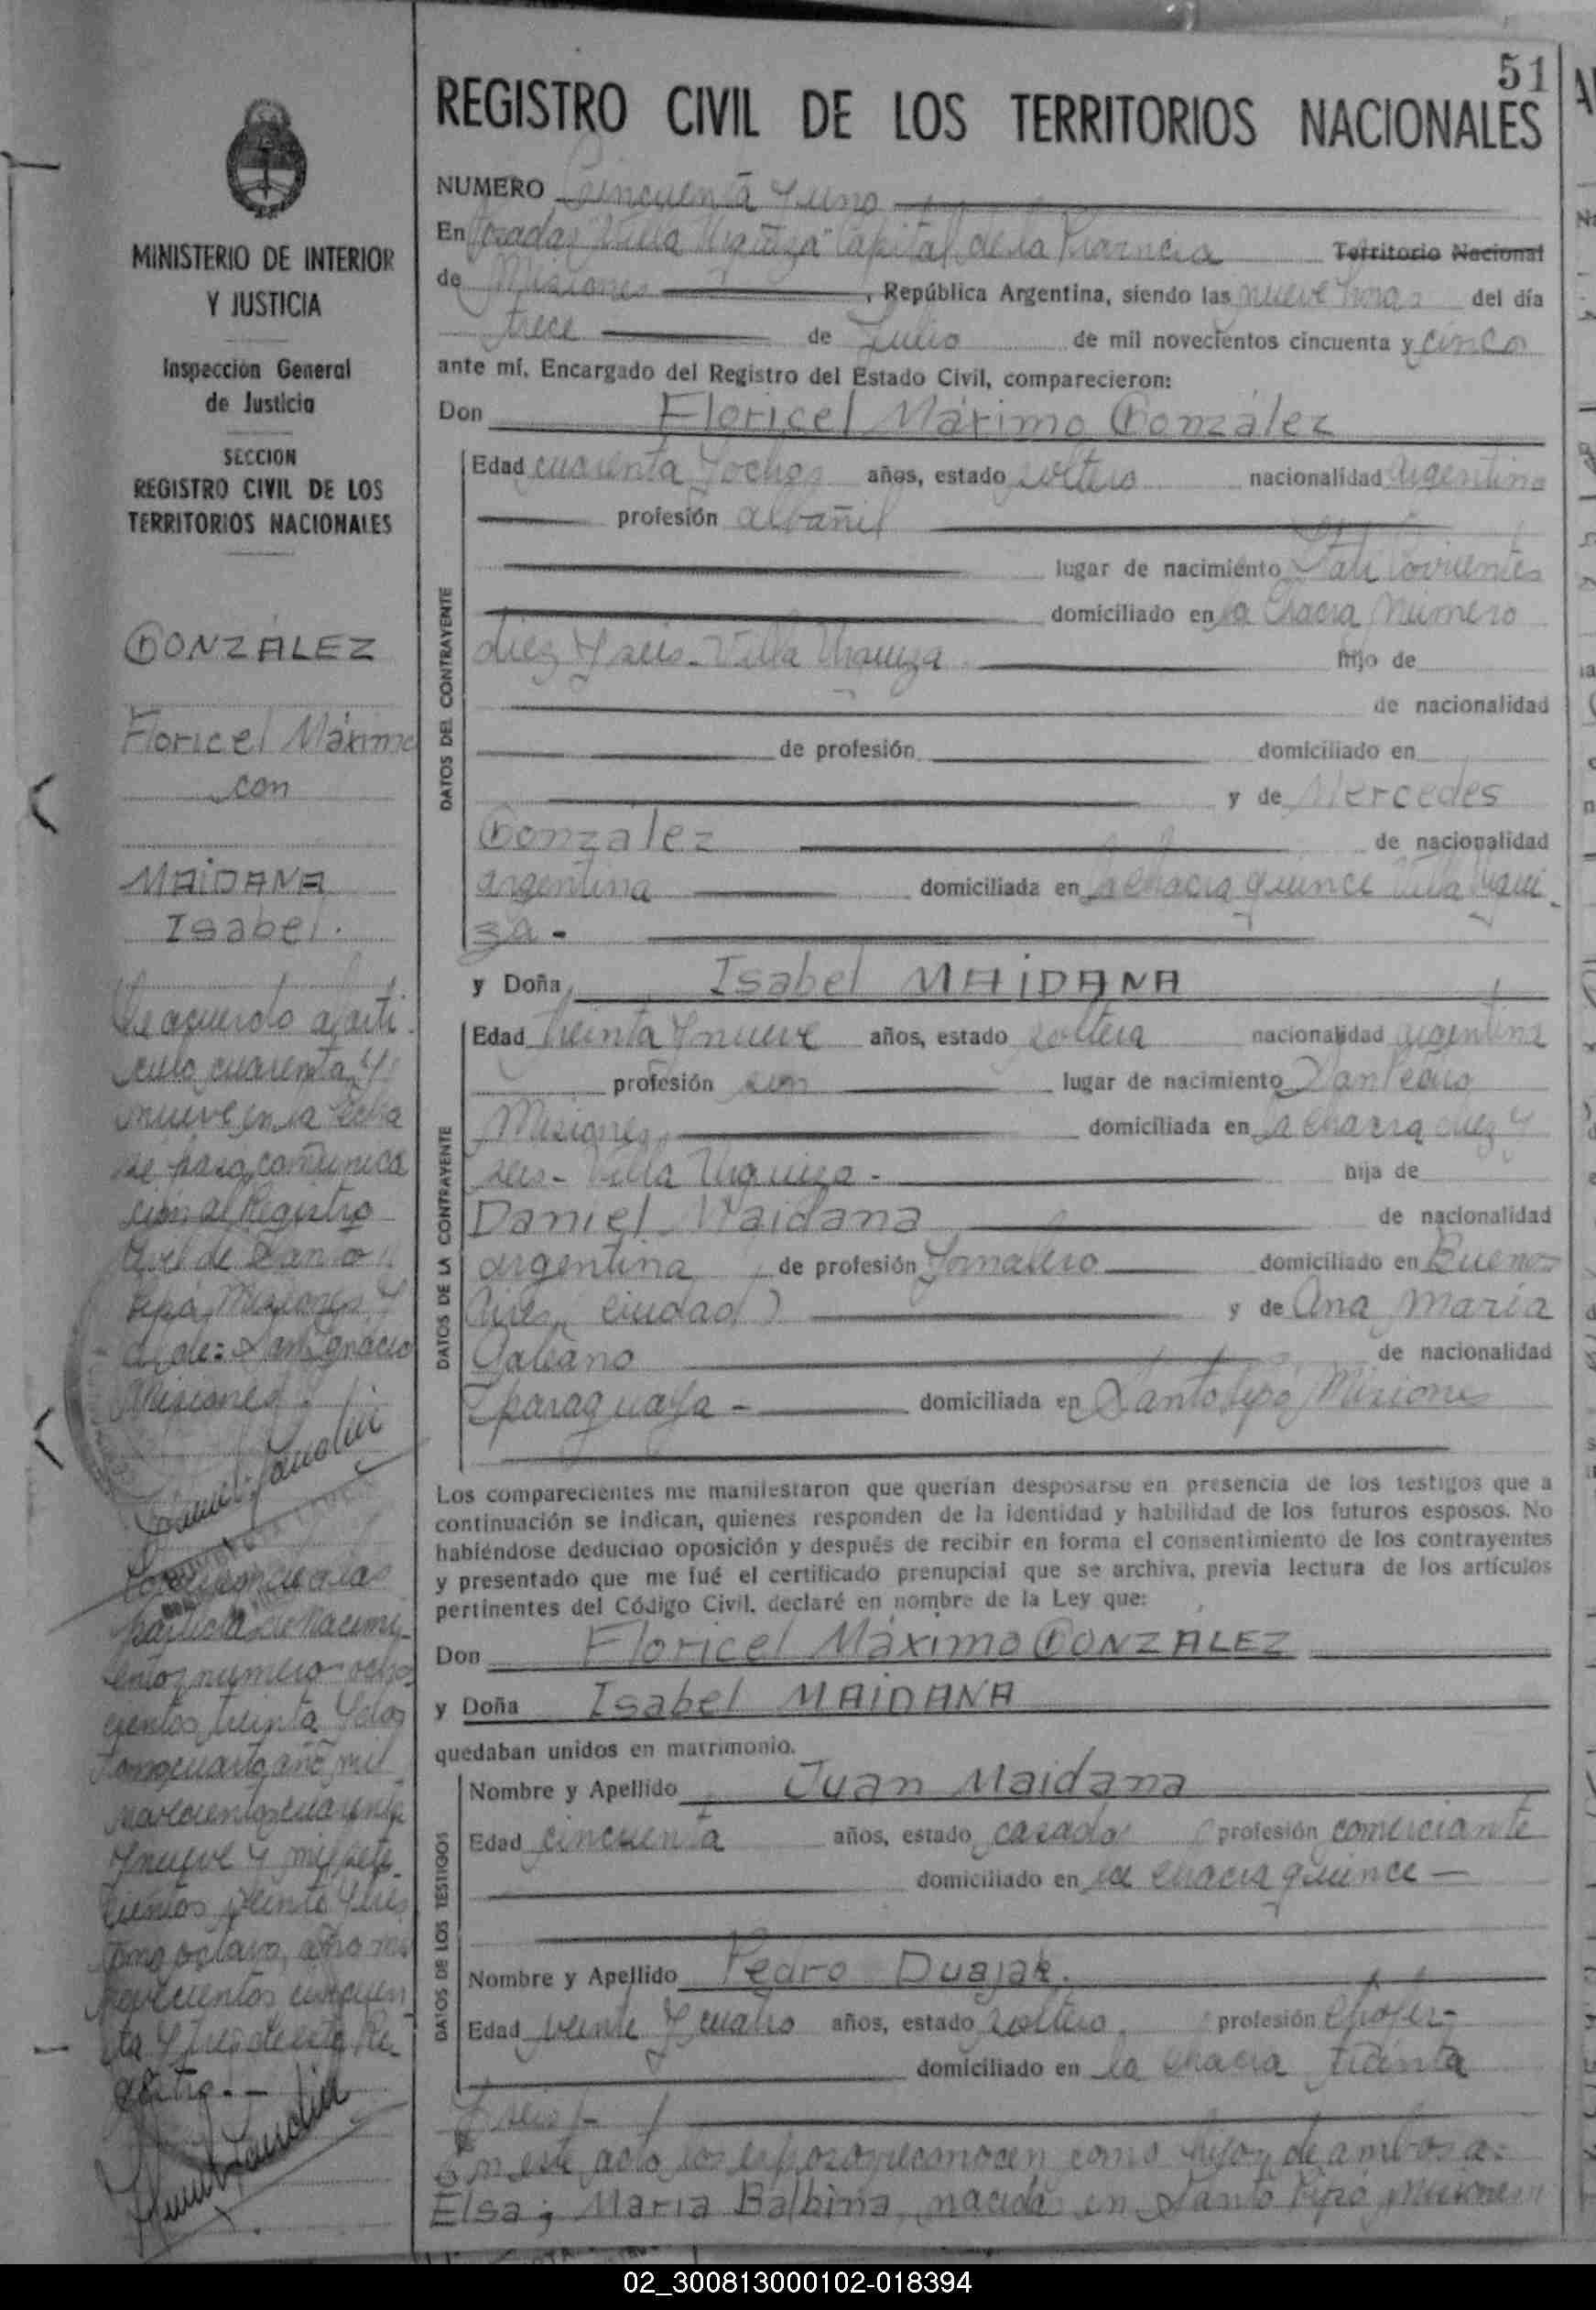 51
REGISTRO CIVIL DE LOS TERRITORIOS NACIONALES
NUMERO Cincuenta y uno
En Posadas "Villa Urquiza" Capital de la Provincia Territorio Nacional
de Misiones, República Argentina, siendo las nueve horas del día
trece de Julio de mil novecientos cincuenta y cinco
ante mí, Encargado del Registro del Estado Civil, comparecieron:
Don Floricel Máximo González
Edad cuarenta y ocho años, estado soltero nacionalidad argentina
profesión albañil
lugar de nacimiento Itatí Corrientes
domiciliado en la Chacra Número
diez y seis - Villa Urquiza hijo de
de nacionalidad
de profesión domiciliado en
y de Mercedes
González de nacionalidad
argentina domiciliada en la Chacra quince Villa Urqui
za -
y Doña Isabel MAIDANA
Edad treinta y nueve años, estado soltera nacionalidad argentina
profesión sin lugar de nacimiento San Pedro
Misiones domiciliada en la Chacra diez y
seis - Villa Urquiza - hija de
Daniel Maidana de nacionalidad
argentina de profesión Jornalero domiciliado en Buenos
Aires, ciudad y de Ana María
Galeano de nacionalidad
paraguaya - domiciliada en Santo Pipó Misiones
Los comparecientes me manifestaron que querían desposarse en presencia de los testigos que a
continuación se indican, quienes responden de la identidad y habilidad de los futuros esposos. No
habiéndose deducido oposición y después de recibir en forma el consentimiento de los contrayentes
y presentado que me fué el certificado prenupcial que se archiva, previa lectura de los artículos
pertinentes del Código Civil, declaré en nombre de la Ley que:
Don Floricel Máximo GONZALEZ
y Doña Isabel MAIDANA
quedaban unidos en matrimonio.
Nombre y Apellido Juan Maidana
Edad cincuenta años, estado casado profesión comerciante
domiciliado en la Chacra quince -
Nombre y Apellido Pedro Duajak.
Edad veinte y cuatro años, estado soltero profesión Chofer -
domiciliado en la Chacra treinta
y seis -
En este acto los esposos reconocen como hijos de ambos a:
Elsa; María Balbina, nacidas en Santo Pipó Misiones
DATOS DEL CONTRAYENTE
DATOS DE LA CONTRAYENTE
DATOS DE LOS TESTIGOS
MINISTERIO DE INTERIOR
Y JUSTICIA
Inspección General
de Justicia
SECCION
REGISTRO CIVIL DE LOS
TERRITORIOS NACIONALES
GONZÁLEZ
Floricel Máximo
con
MAIDANA
Isabel.
De acuerdo al artí
culo cuarenta y
nueve en la fecha
se pasa comunica
ción al Registro
Civil de Santo
Pipó, Misiones y
al de: San Ignacio
Misiones
partida de nacimi
ento número ocho
cientos treinta y dos
tomo cuarto año mil
novecientos cuarenta
y nueve y mil sete
cientos veinte y tres
tomo octavo, año mil
novecientos cincuen
ta y tres de este Re
gistro. -
02_300813000102-018394